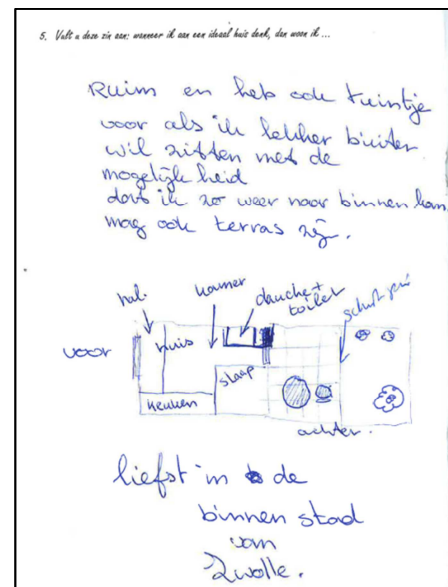 5. Vult u deze zin aan: wanneer ik aan een ideaal huis denk, dan woon ik ...
Ruim en heb ook tuintje
voor als ik lekker buiten
wil zitten met de
mogelijkheid
dat ik zo weer naar binnen kan
mag ook terras zijn.
hal.
kamer
douche +
toilet
schuif pui
voor
huis
slaap
keuken
achter.
liefst in de
binnen stad
van
Zwolle.